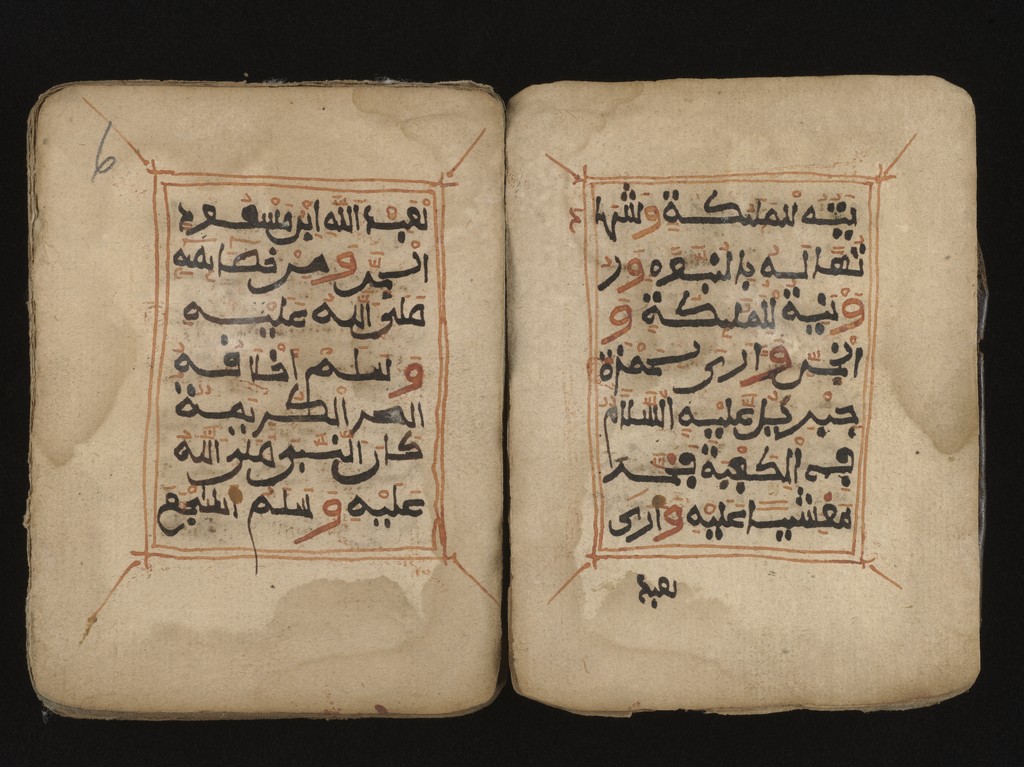 يته للمليكة وشها
دتها له بالنبوءه ور
وئية للمليكة و
الجن وارى لحمزة
جبريل عليه السلام
في الكعبة فخر
مغشيا عليه وارى
لعبد
لعبد الله ابن مسعود
الجن و من خصايصه
صلى الله عليه
و سلم اخلاقه
الكريمة
كان النبي صلى الله
عليه و سلم اشجع
6